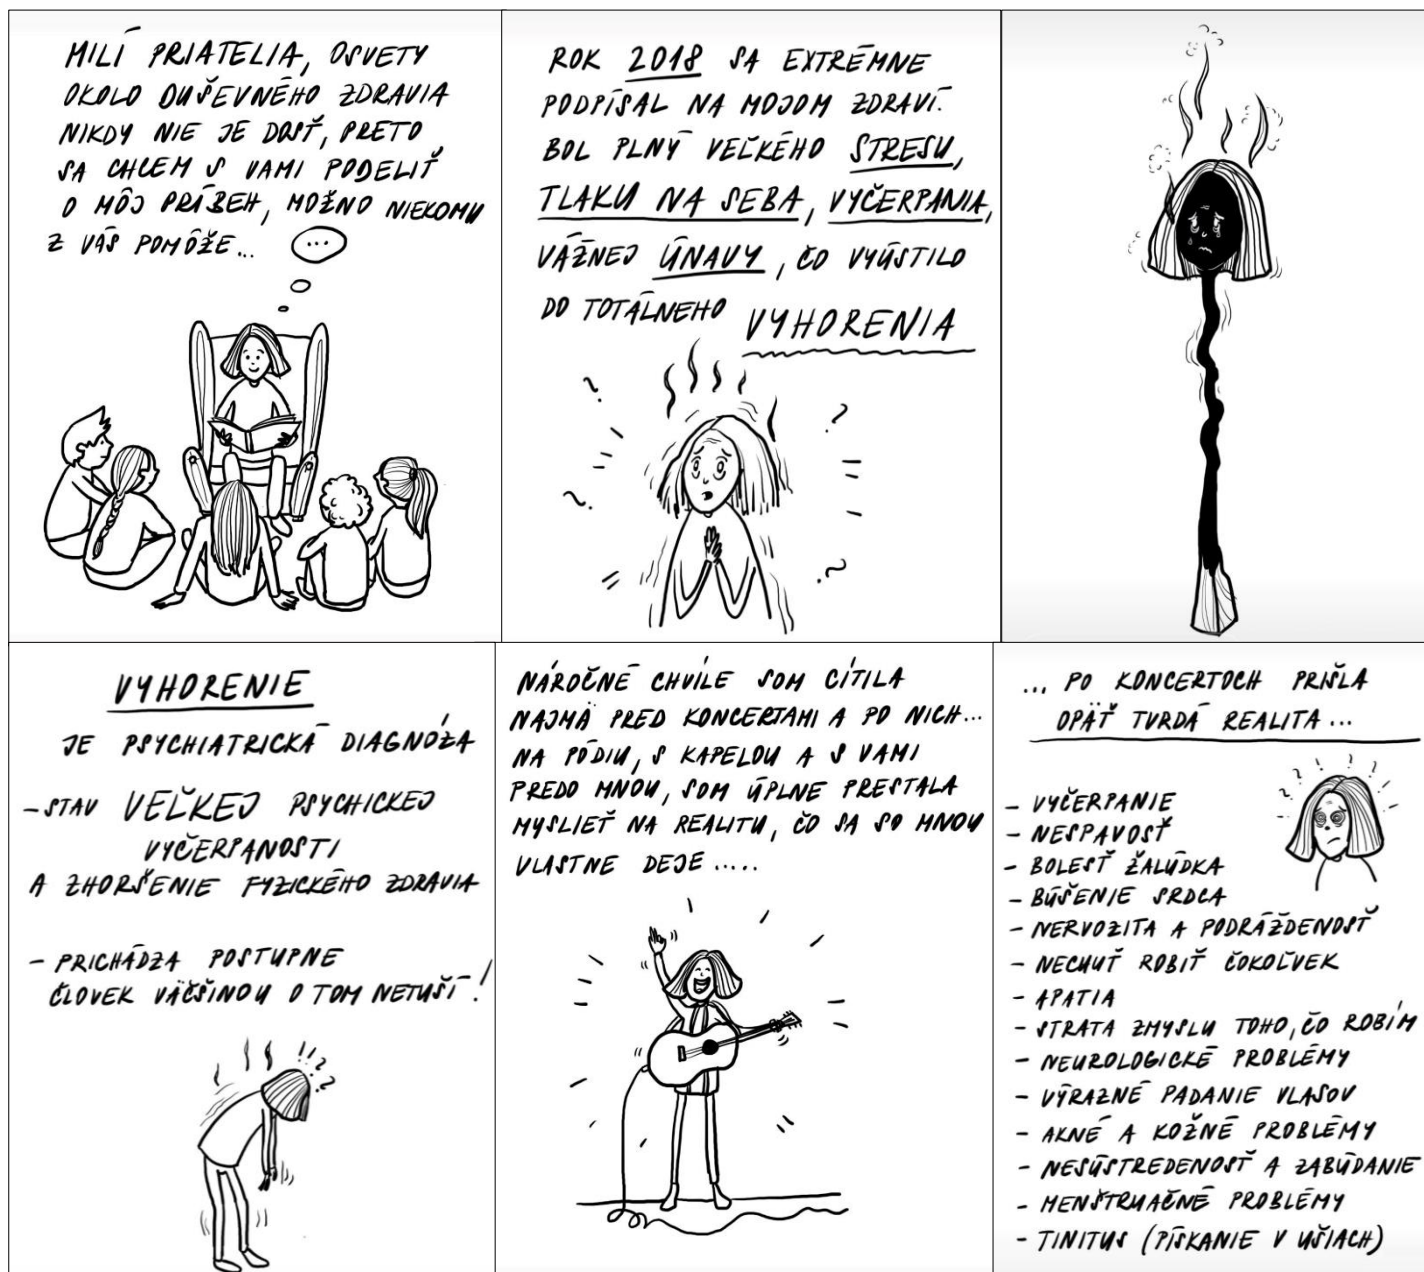 MILÍ PRIATELIA, OSVETY
OKOLO DUŠEVNÉHO ZDRAVIA
NIKDY NIE JE DOSŤ, PRETO
SA CHCEM S VAMI PODELIŤ
O MÔJ PRÍBEH, MOŽNO NIEKOMU
Z VÁS POMÔŽE...
...
ROK 2018 SA EXTRÉMNE
PODPÍSAL NA MOJOM ZDRAVÍ.
BOL PLNÝ VEĽKÉHO STRESU,
TLAKU NA SEBA, VYČERPANIA,
VÁŽNEJ ÚNAVY, ČO VYÚSTILO
DO TOTÁLNEHO VYHORENIA
? ? ? ?
VYHORENIE
JE PSYCHIATRICKÁ DIAGNÓZA
- STAV VEĽKEJ PSYCHICKEJ
VYČERPANOSTI
A ZHORŠENIE FYZICKÉHO ZDRAVIA
- PRICHÁDZA POSTUPNE
ČLOVEK VÄČŠINOU O TOM NETUŠÍ!
!!??
NÁROČNÉ CHVÍLE SOM CÍTILA
NAJMÄ PRED KONCERTAMI A PO NICH...
NA PÓDIU, S KAPELOU A S VAMI
PREDO MNOU, SOM ÚPLNE PRESTALA
MYSLIEŤ NA REALITU, ČO SA SO MNOU
VLASTNE DEJE.....
... PO KONCERTOCH PRIŠLA
OPÄŤ TVRDÁ REALITA...
- VYČERPANIE
- NESPAVOSŤ
- BOLESŤ ŽALÚDKA
- BÚŠENIE SRDCA
- NERVOZITA A PODRÁŽDENOSŤ
- NECHUŤ ROBIŤ ČOKOĽVEK
- APATIA
- STRATA ZMYSLU TOHO, ČO ROBÍM
- NEUROLOGICKÉ PROBLÉMY
- VÝRAZNÉ PADANIE VLASOV
- AKNÉ A KOŽNÉ PROBLÉMY
- NESÚSTREDENOSŤ A ZABÚDANIE
- MENŠTRUAČNÉ PROBLÉMY
- TINITUS (PÍSKANIE V UŠIACH)